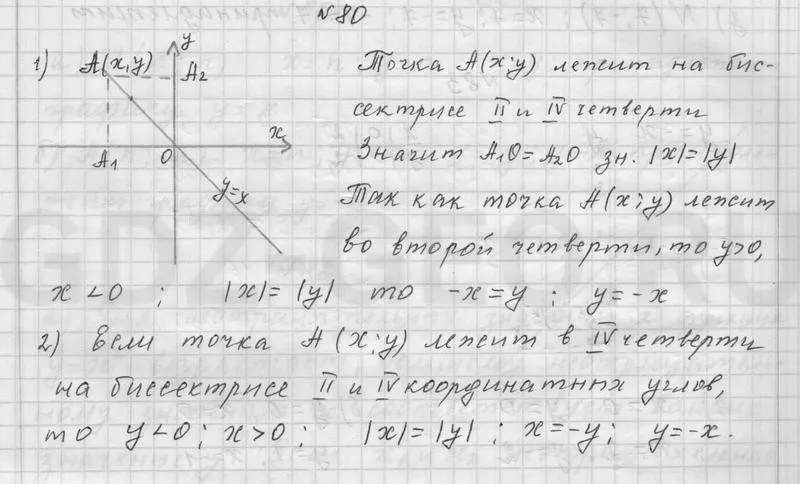 №80
1) A(x,y) y A2 Точка A(x;y) лежит на бис-
сектрисе II и IV четверти
x A1 O Значит A1O=A2O зн. |x|=|y|
y=x Так как точка A(x;y) лежит
во второй четверти, то y>0,
x<0 ; |x|=|y| то -x=y ; y=-x
2) Если точка A(x;y) лежит в IV четверти
на биссектрисе II и IV координатных углов,
то y<0; x>0; |x|=|y| ; x=-y; y=-x.